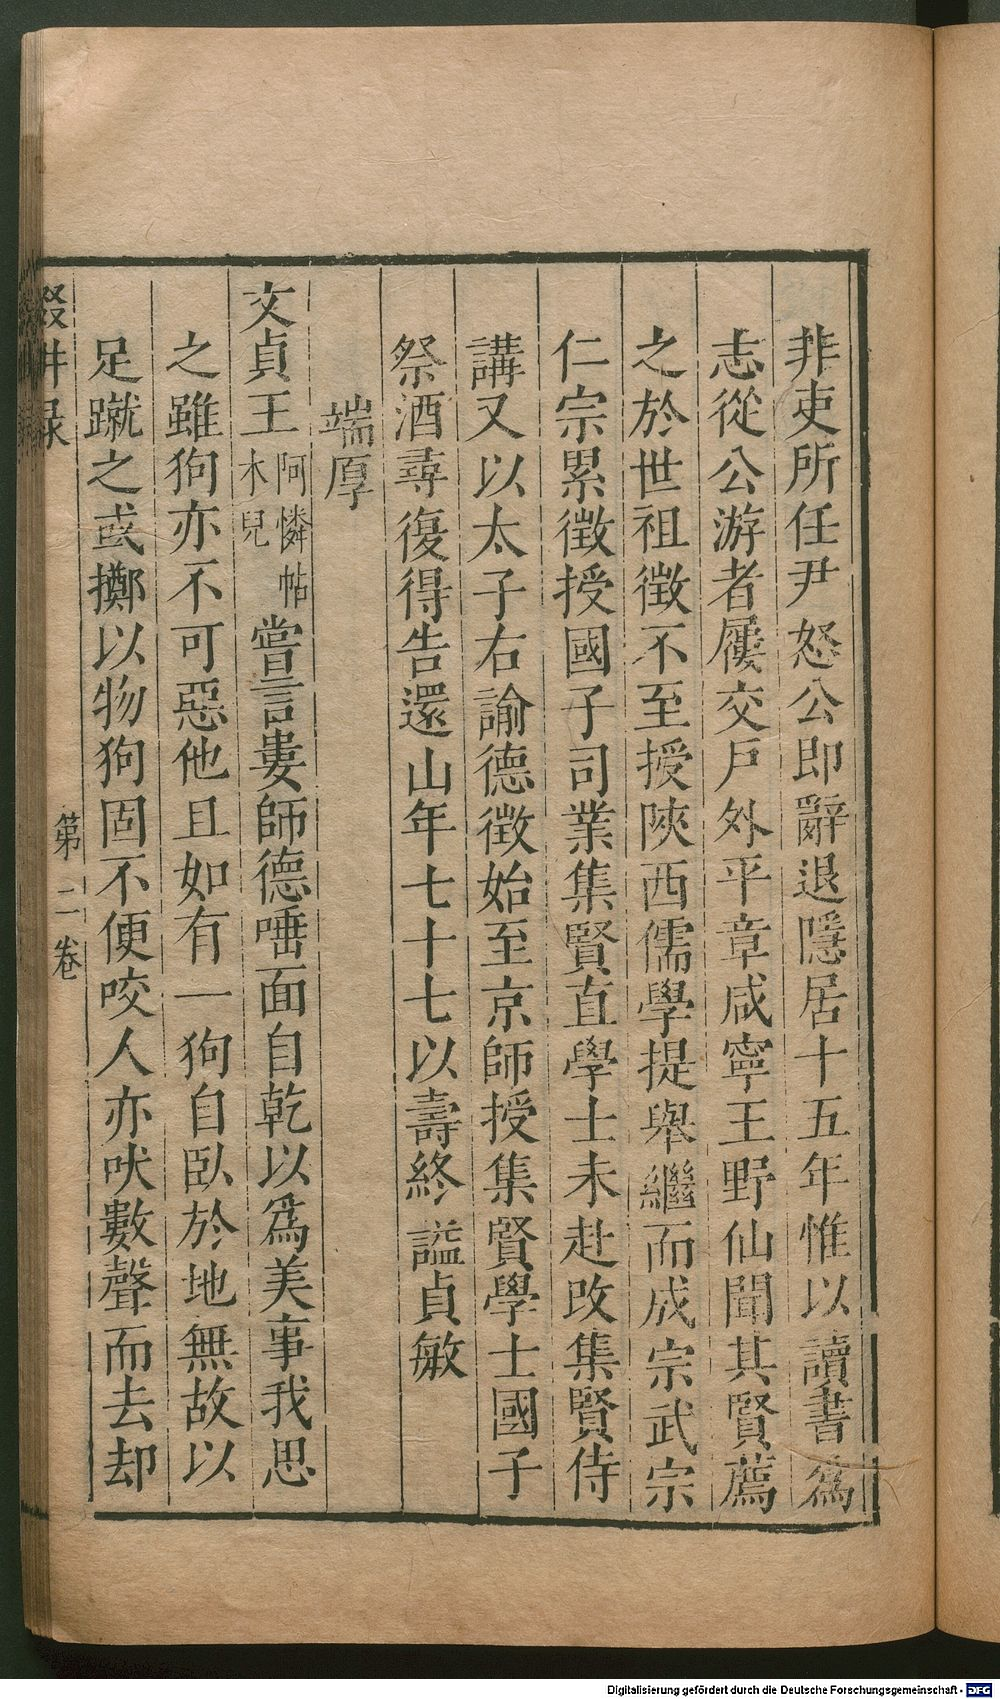 非吏所任尹怒公即辭退隱居十五年惟以讀書爲
志從公游者屨交戶外平章咸寧王野仙聞其賢薦
之於世祖徵不至授陝西儒學提舉繼而成宗武宗
仁宗累徵授國子司業集賢直學士未赴改集賢侍
講又以太子右諭德徵始至京師授集賢學士國子
祭酒尋復得告還山年七十七以壽終謚貞敏
端厚
文貞王阿憐帖木兒嘗言婁師德唾面自乾以爲美事我思
之雖狗亦不可惡他且如有一狗自臥於地無故以
足蹴之或擲以物狗固不便咬人亦吠數聲而去却
第二卷
Digitalisierung gefördert durch die Deutsche Forschungsgemeinschaft - DFG